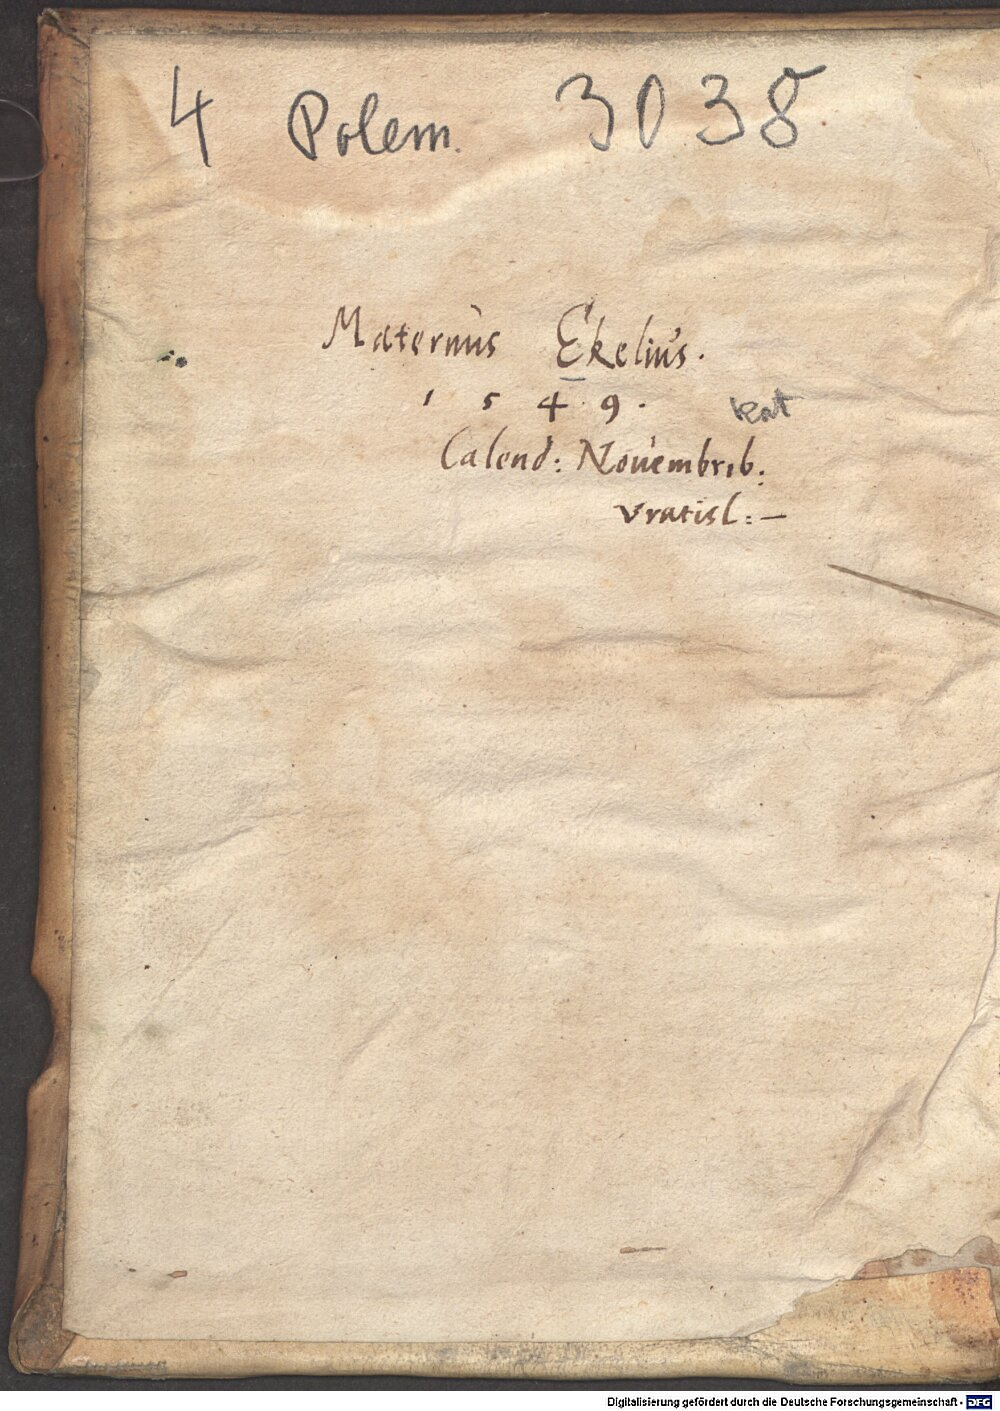 4 Polem. 3038
Maternus Ekelius.
1 5 4 9.
kat
Calend: Nouembrib:
Vratisl: —
Digitalisierung gefördert durch die Deutsche Forschungsgemeinschaft - DFG